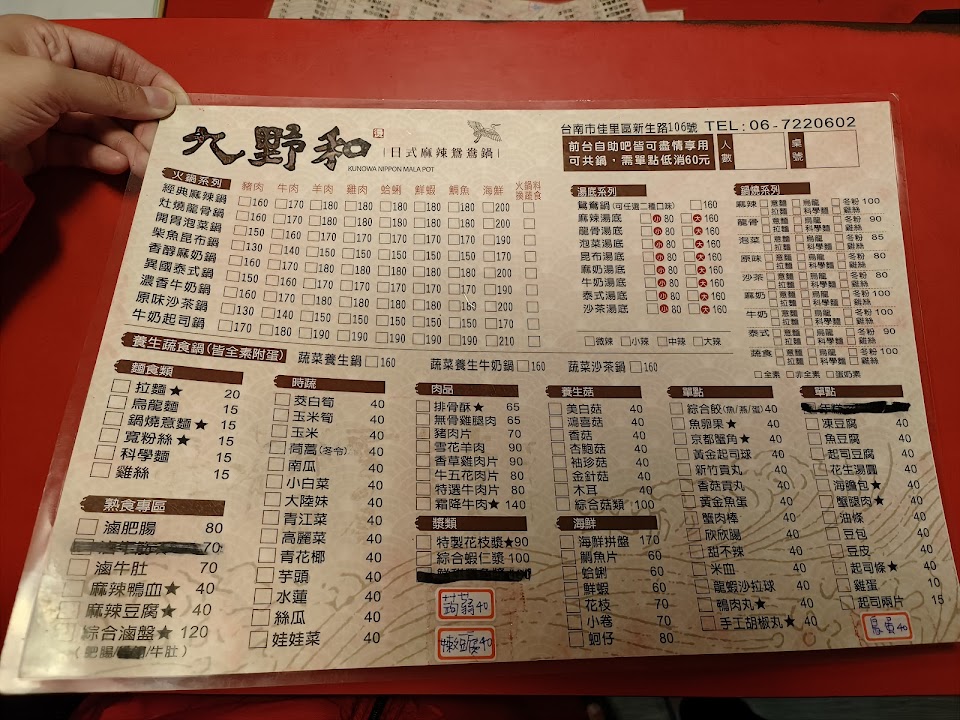 九野和 日式麻辣鴛鴦鍋
KUNOWA NIPPON MALA POT
台南市佳里區新生路106號 TEL: 06-7220602
前台自助吧皆可盡情享用
可共鍋,需單點低消60元
人數
桌號
火鍋系列 豬肉 牛肉 羊肉 雞肉 蛤蜊 鮮蝦 鯛魚 海鮮 火鍋料換蔬食
經典麻辣鍋 160 170 180 180 180 180 180 200
灶燒龍骨鍋 150 160 170 170 170 170 170 190
開胃泡菜鍋 150 160 170 170 170 170 170 190
柴魚昆布鍋 130 140 150 150 150 150 150 170
香醇麻奶鍋 160 170 180 180 180 180 180 200
異國泰式鍋 150 160 170 170 170 170 170 190
濃香牛奶鍋 160 170 180 180 180 180 180 200
原味沙茶鍋 130 140 150 150 150 150 150 170
牛奶起司鍋 170 180 190 190 190 190 190 210
湯底系列
鴛鴦鍋(可任選二種口味) 160
麻辣湯底 小 80 大 160
龍骨湯底 小 80 大 160
泡菜湯底 小 80 大 160
昆布湯底 小 80 大 160
麻奶湯底 小 80 大 160
牛奶湯底 小 80 大 160
泰式湯底 小 80 大 160
沙茶湯底 小 80 大 160
微辣 小辣 中辣 大辣
鍋燒系列
麻辣 意麵 烏龍 冬粉 100
拉麵 科學麵 雞絲
龍骨 意麵 烏龍 冬粉 90
拉麵 科學麵 雞絲
泡菜 意麵 烏龍 冬粉 85
拉麵 科學麵 雞絲
原味 意麵 烏龍 冬粉 80
拉麵 科學麵 雞絲
沙茶 意麵 烏龍 冬粉 80
拉麵 科學麵 雞絲
麻奶 意麵 烏龍 冬粉 100
拉麵 科學麵 雞絲
牛奶 意麵 烏龍 冬粉 100
拉麵 科學麵 雞絲
泰式 意麵 烏龍 冬粉 90
拉麵 科學麵 雞絲
蔬食 意麵 烏龍 冬粉 100
拉麵 科學麵 雞絲
全素 非全素 蛋奶素
養生蔬食鍋(皆全素附蛋) 蔬菜養生鍋 160 蔬菜養生牛奶鍋 160 蔬菜沙茶鍋 160
麵食類
拉麵★ 20
烏龍麵 15
鍋燒意麵★ 15
寬粉絲★ 15
科學麵 15
雞絲 15
熟食專區
滷肥腸 80
70
滷牛肚 70
麻辣鴨血★ 40
麻辣豆腐★ 40
綜合滷盤★ 120
(肥腸/ /牛肚)
時蔬
茭白筍 40
玉米筍 40
玉米 40
茼蒿(冬令) 40
南瓜 40
小白菜 40
大陸妹 40
青江菜 40
高麗菜 40
青花椰 40
芋頭 40
水蓮 40
絲瓜 40
娃娃菜 40
肉品
排骨酥★ 65
無骨雞腿肉 65
豬肉片 70
雪花羊肉 90
香草雞肉片 90
牛五花肉片 80
特選牛肉片 80
霜降牛肉★ 140
漿類
特製花枝漿★90
綜合蝦仁漿 100
蒟蒻40
辣豆腐40
養生菇
美白菇 40
鴻喜菇 40
香菇 40
杏鮑菇 40
袖珍菇 40
金針菇 40
木耳 40
綜合菇類 100
海鮮
海鮮拼盤 170
鯛魚片 60
蛤蜊 60
鮮蝦 60
花枝 70
小卷 70
蚵仔 80
單點
綜合餃(魚/燕/蛋) 40
魚卵果★ 40
京都蟹角★ 40
黃金起司球 40
新竹貢丸 40
香菇貢丸 40
黃金魚蛋 40
蟹肉棒 40
欣欣腸 40
甜不辣 40
米血 40
龍蝦沙拉球 40
鴨肉丸★ 40
手工胡椒丸★ 40
單點
凍豆腐 40
魚豆腐 40
起司豆腐 40
花生湯圓 40
海膽包★ 40
蟹腿肉★ 40
油條 40
豆包 40
豆皮 40
起司條★ 40
雞蛋 10
起司兩片 15
40